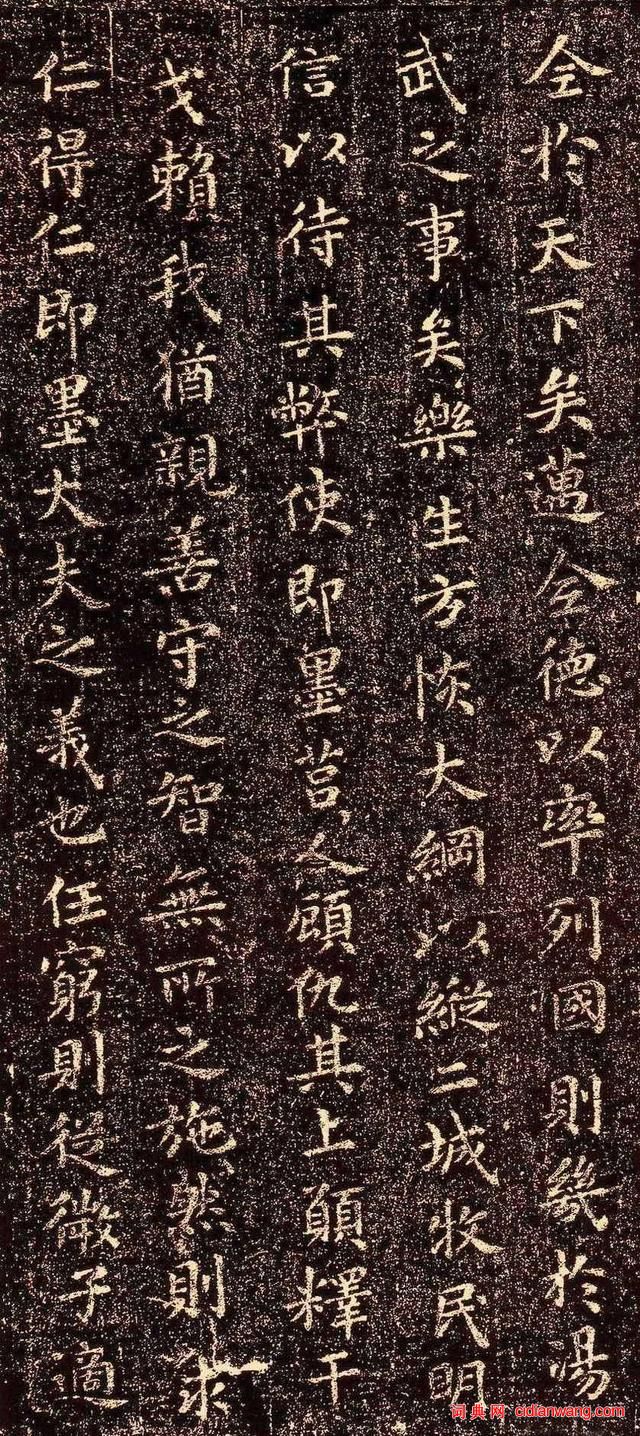 全於天下矣邁全德以率列國則幾於湯
武之事矣樂生方恢大綱以縱二城牧民明
信以待其弊使即墨莒人顧仇其上願釋干
戈賴我猶親善守之智無所之施然則求
仁得仁即墨大夫之義也任窮則從微子適
词典网 cidianwang.com